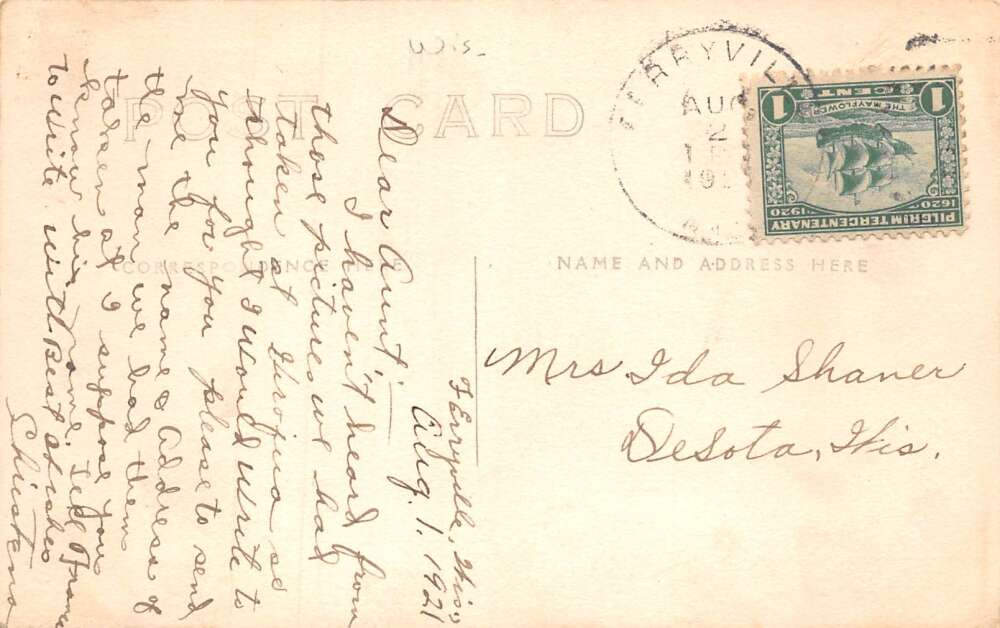 Wis-
POST CARD
FERRYVIL
AUG
2
192
1 CENT 1
THE MAYFLOWER
1620 1920
PILGRIM TERCENTENARY
CORRESPONDENCE HERE
NAME AND ADDRESS HERE
Mrs Ida Shaner
DeSota, Wis.
Ferryville, Wis.,
Aug. 1, 1921
Dear Aunt:
I haven't heard from
those pictures we had
taken at Viroqua so
thought I would write to
you for you please to send
me the name & address of
the man we had them
taken at I suppose you
know his name. Tell Franc
to write with Best of wishes